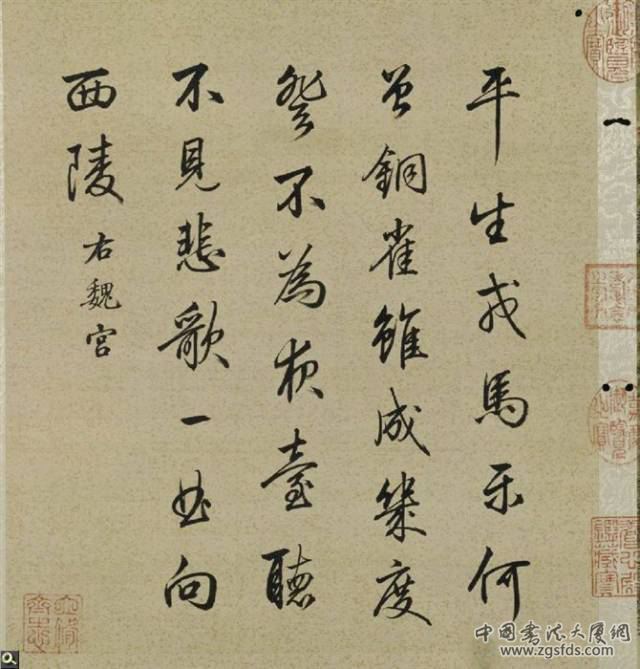 平生戎馬樂何
曾銅雀雖成幾度
登不為夜臺聽
不見悲歌一曲向
西陵
右魏宮
中國書法大厦網
www.zgsfds.com